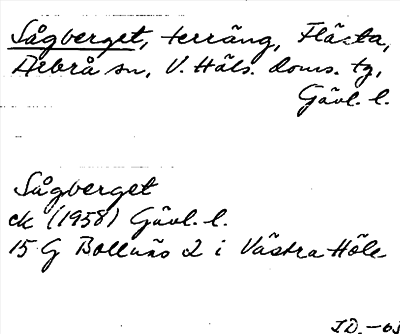 Sågberget, terräng, Flästa,
Arbrå sn, V. Häls. doms. tg,
Gävl. l.
Sågberget
ek (1958) Gävl. l.
15 G Bollnäs 2 i Västra Höle
JD.-63